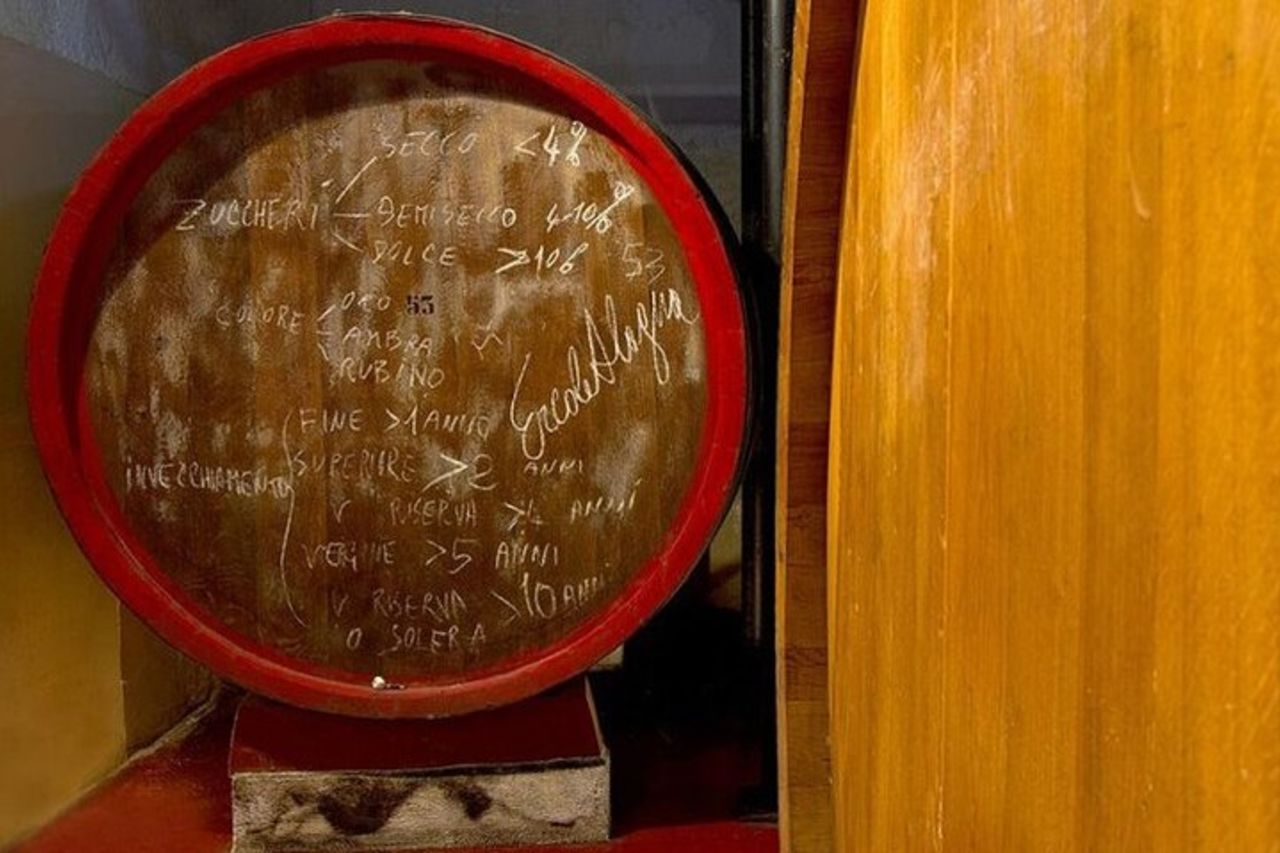 SECCO <4%
ZUCCHERI DEMISECCO 4-10%
DOLCE >10%
53
COLORE ORO 53
AMBRA
RUBINO
Ercole Alagna
FINE >1 ANNO
INVECCHIAMENTO SUPERIORE >2 ANNI
V RISERVA >4 ANNI
VERGINE >5 ANNI
V RISERVA >10 ANNI
O SOLERA